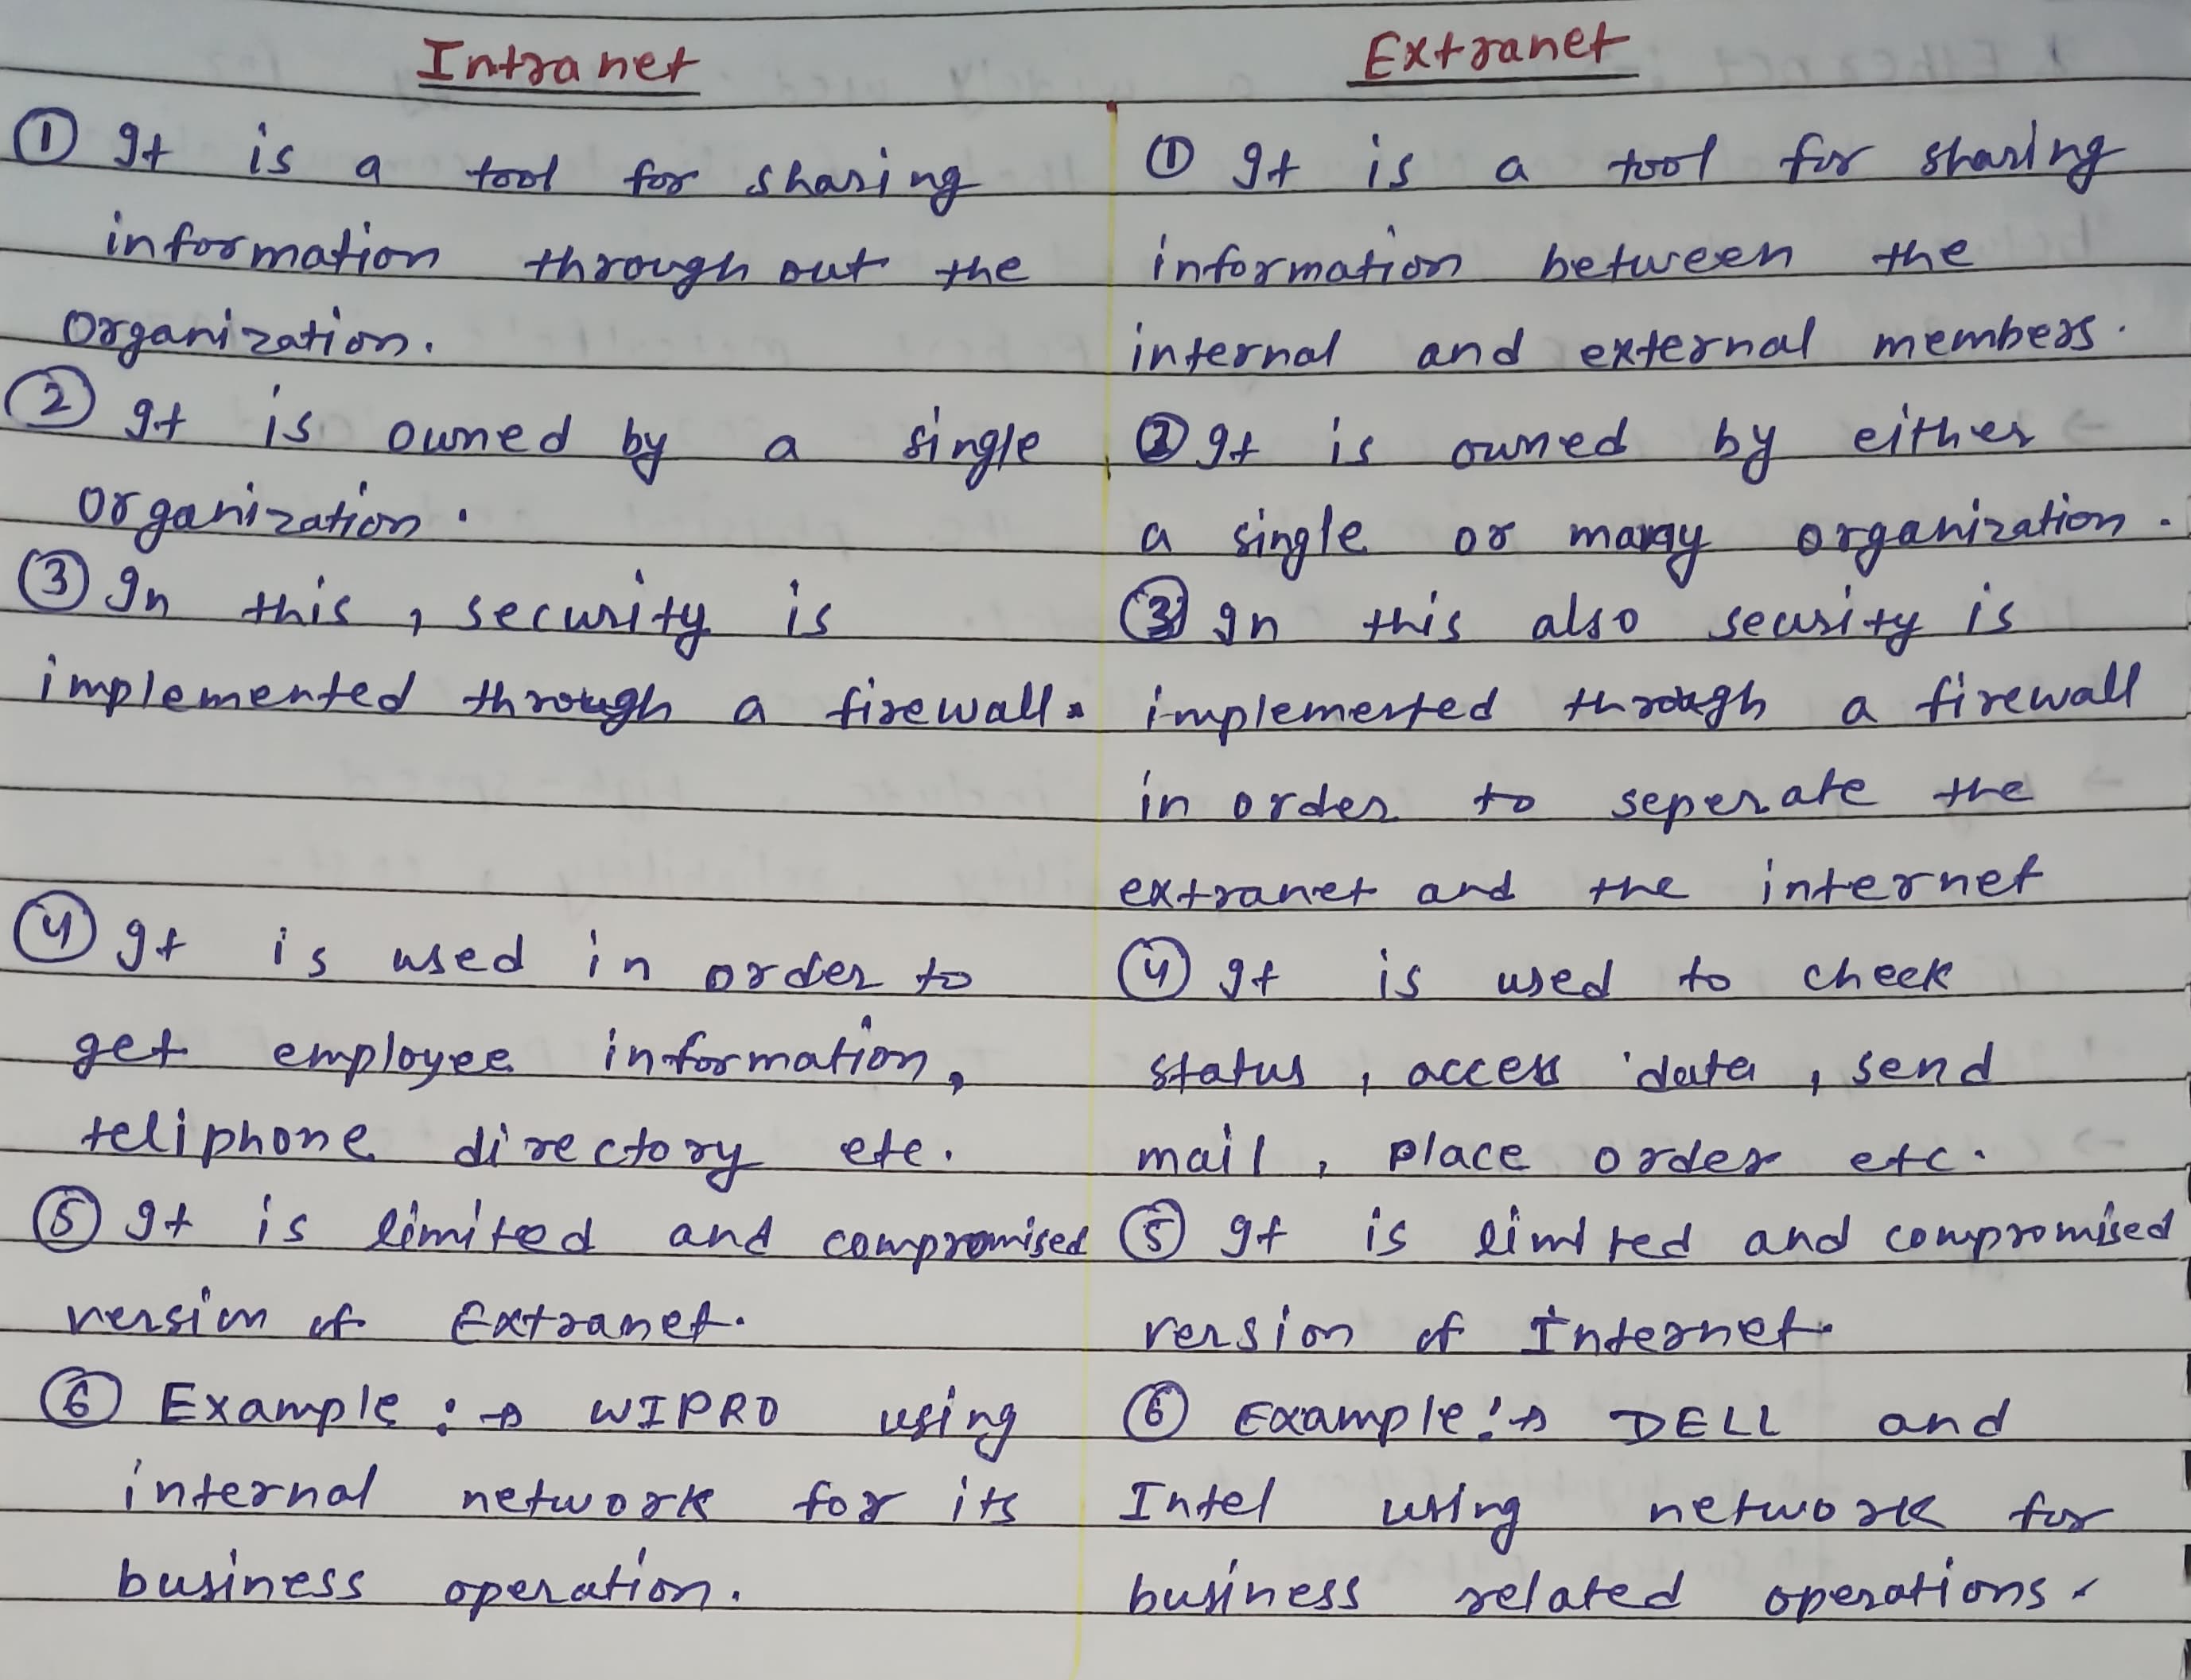 Intranet
① It is a tool for sharing
information through out the
Organization.
② It is owned by a single
organization.
③ In this, security is
implemented through a firewall.
④ It is used in order to
get employee information,
teliphone directory etc.
⑤ It is limited and compromised
version of Extranet.
⑥ Example :→ WIPRO using
internal network for its
business operation.
Extranet
① It is a tool for sharing
information between the
internal and external members.
② It is owned by either
a single or many organization.
③ In this also security is
implemented through a firewall
in order to seperate the
extranet and the internet
④ It is used to check
status, access data, send
mail, place order etc.
⑤ It is limited and compromised
version of Internet.
⑥ Example :→ DELL and
Intel using network for
business related operations.